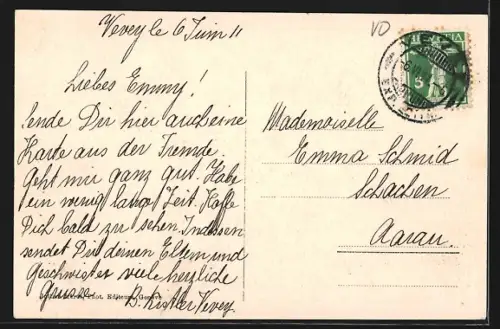 Vevey le 6 Juin 11
VD
HELVETIA
5
Liebes Emmy!
sende Dir hier auch eine
Karte aus der Fremde.
Geht mir ganz gut. Habe
ein wenig lange Zeit. Hoffe
Dich bald zu sehen. Indessen
sendet Dir deinen Eltern und
Geschwister viele herzliche
Grüsse B. Kistler Vevey.
Mademoiselle
Emma Schmid
Schachen
Aarau.
Phot. Editeurs, Genève